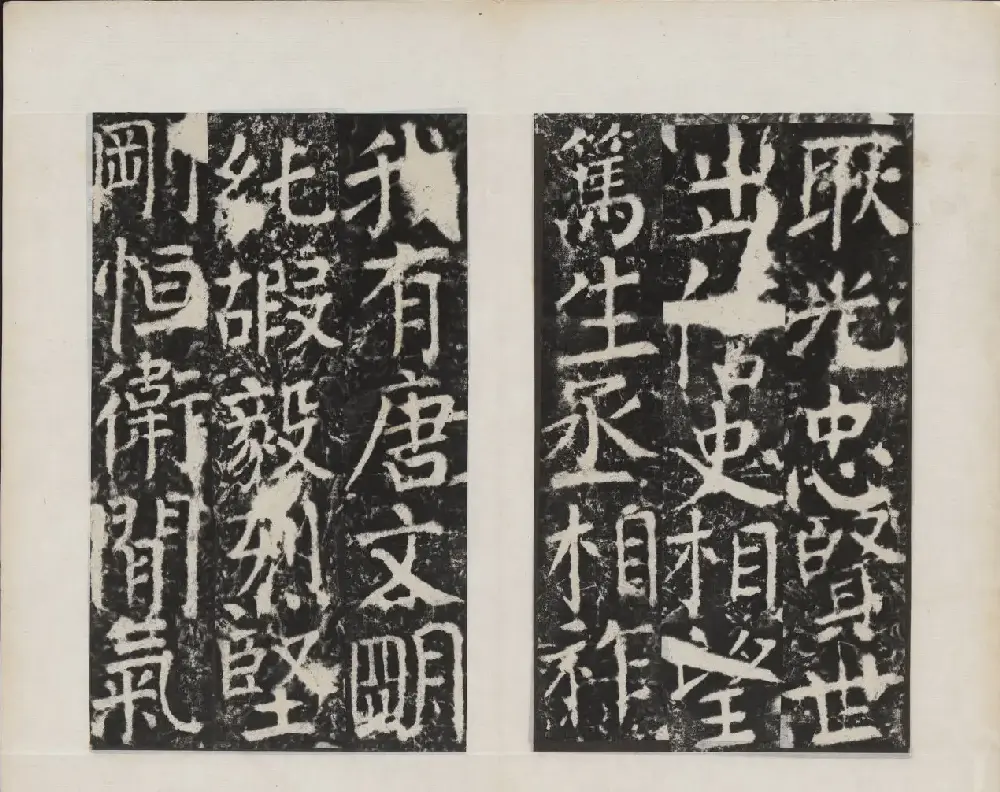 耿光忠賢世
出信史相望
篤生丞相祚
我有唐文明
純嘏毅烈堅
剛恒衛閒氣